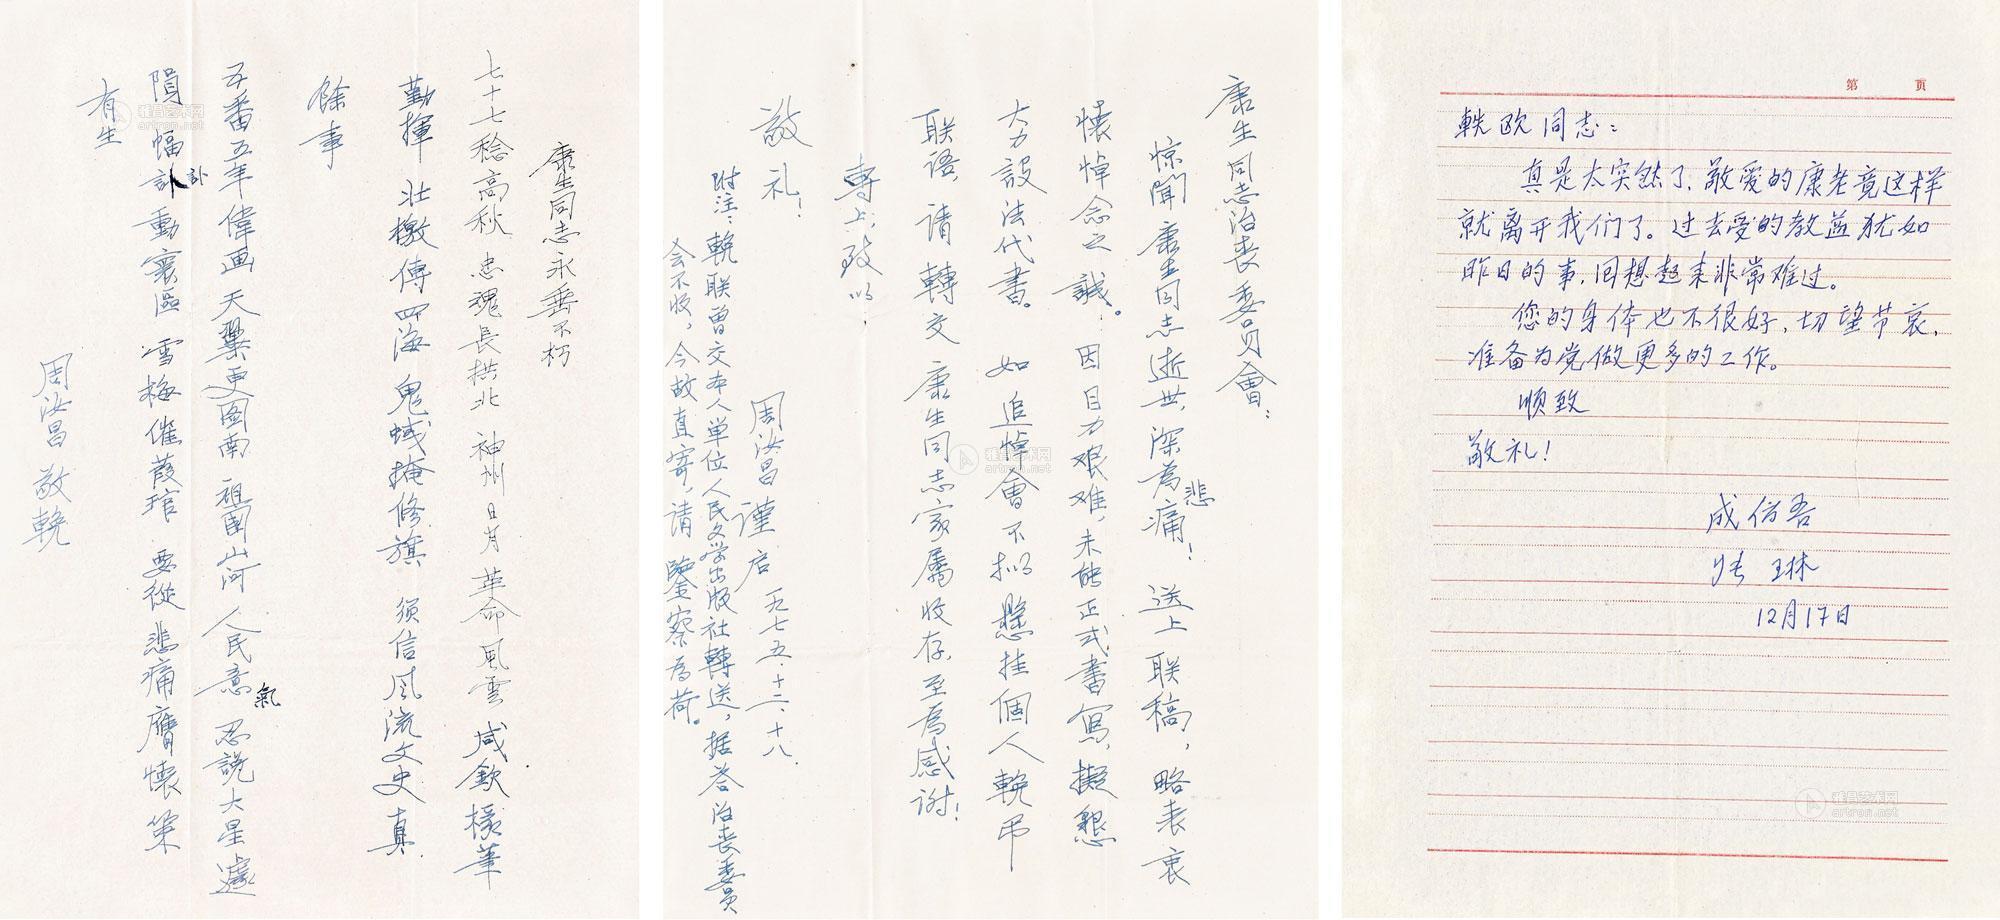 康生同志永垂不朽
七十七稔高秋 忠魂長拱北 神州日月 革命風雲 咸欽椽筆
勤揮 壮檄傳四海 鬼蜮掩修旗 須信風流文史真
餘事
五番五年偉画 天翼更图南 祖国山河 人民意氣 忍説大星遽
隕 幅訃動寰區 雪梅催葭琯 要從悲痛膺懷策
有生
周汝昌敬輓
康生同志治丧委员會：
惊聞康生同志逝世，深為悲痛！送上联稿，略表衷
懐悼念之誠。因目力艰难，未能正式書寫，擬懇
大力設法代書。如追悼會不拟懸挂個人輓吊
联语，请轉交康生同志家屬收存，至為感谢！
專上，致以
敬礼！
周汝昌谨启 一九七五.十二.十八.
附注：輓联曾交本人单位人民文学出版社轉送，据答治丧委员
会不收，今故直寄，请鑒察為荷。
第 页
轶欧同志：
真是太突然了，敬爱的康老竟这样
就离开我们了。过去受的教益犹如
昨日的事，回想起来非常难过。
您的身体也不很好，切望节哀，
准备为党做更多的工作。
顺致
敬礼！
成仿吾
张琳
12月17日
雅昌艺术网
artron.net
雅昌艺术网
artron.net
雅昌艺术网
artron.net